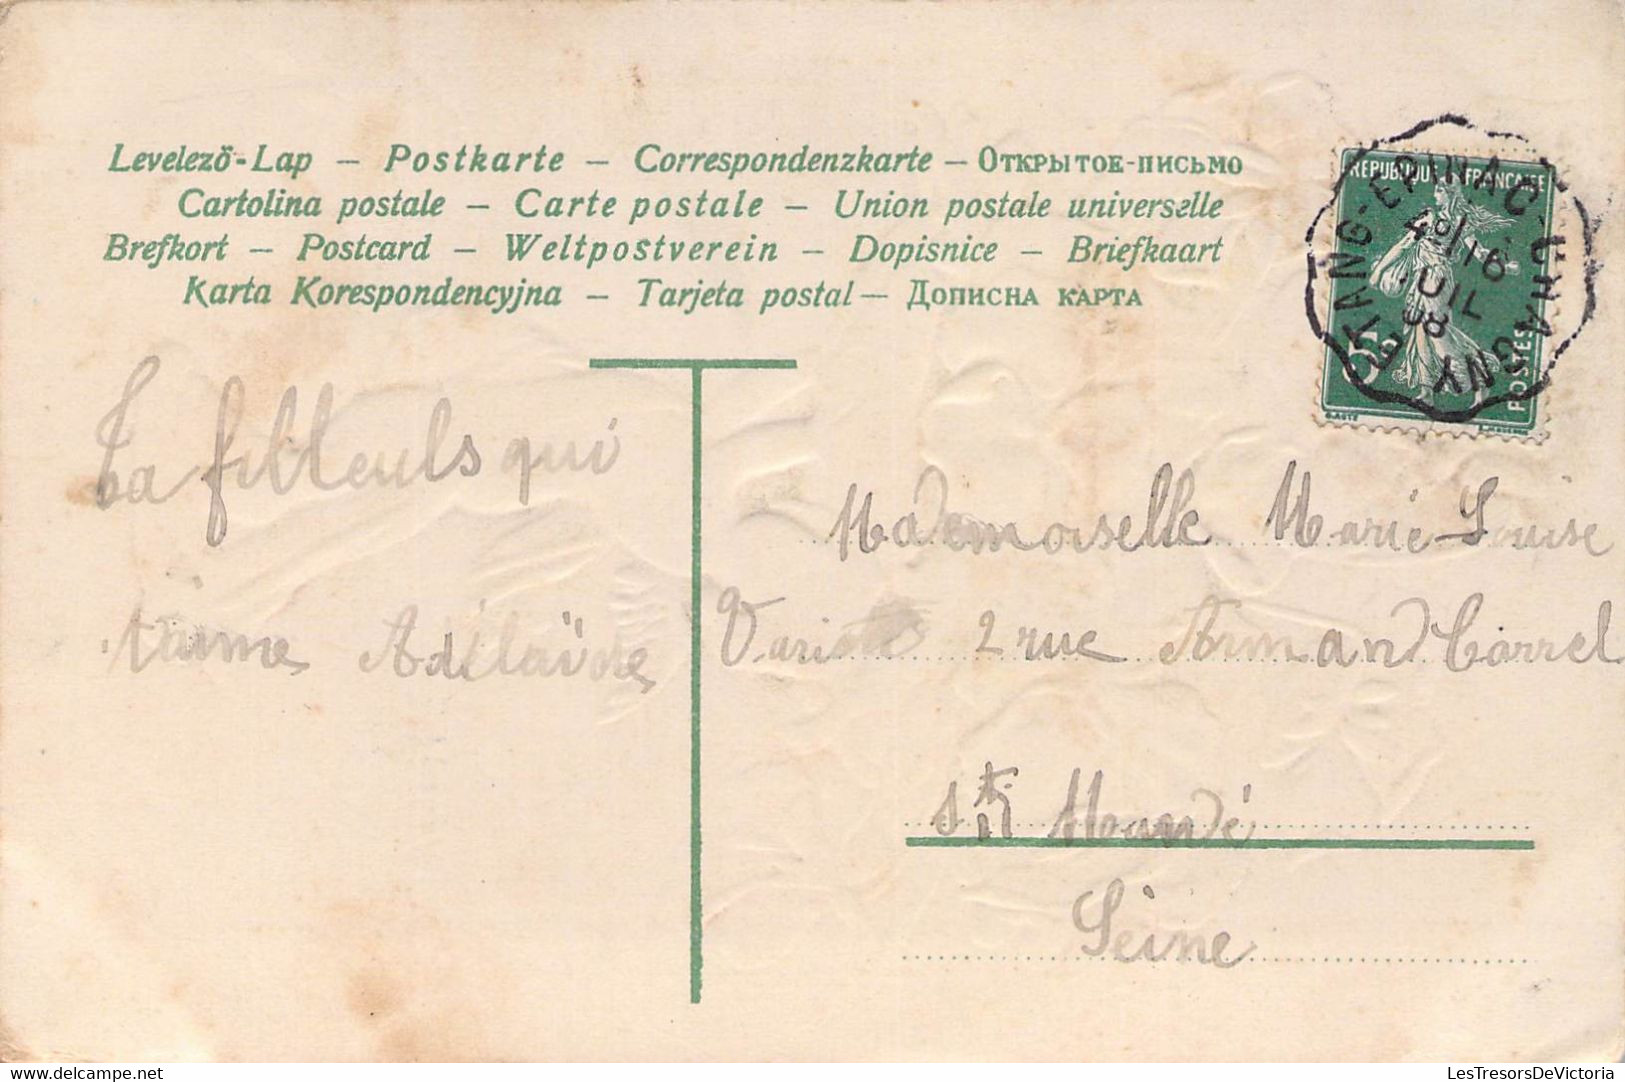 Levelező-Lap – Postkarte – Correspondenzkarte – Открытое-письмо
Cartolina postale – Carte postale – Union postale universelle
Brefkort – Postcard – Weltpostverein – Dopisnice – Briefkaart
Karta Korespondencyjna – Tarjeta postal – Дописна карта
REPUBLIQUE FRANÇAISE
POSTES
ETANG-EPINAC-
16
JUIL
08
Ta filleuls qui
t'aime Adélaïde
Mademoiselle Marie-Louise
2 rue Arman Carrel
St Mandé
Seine
www.delcampe.net
LesTresorsDeVictoria